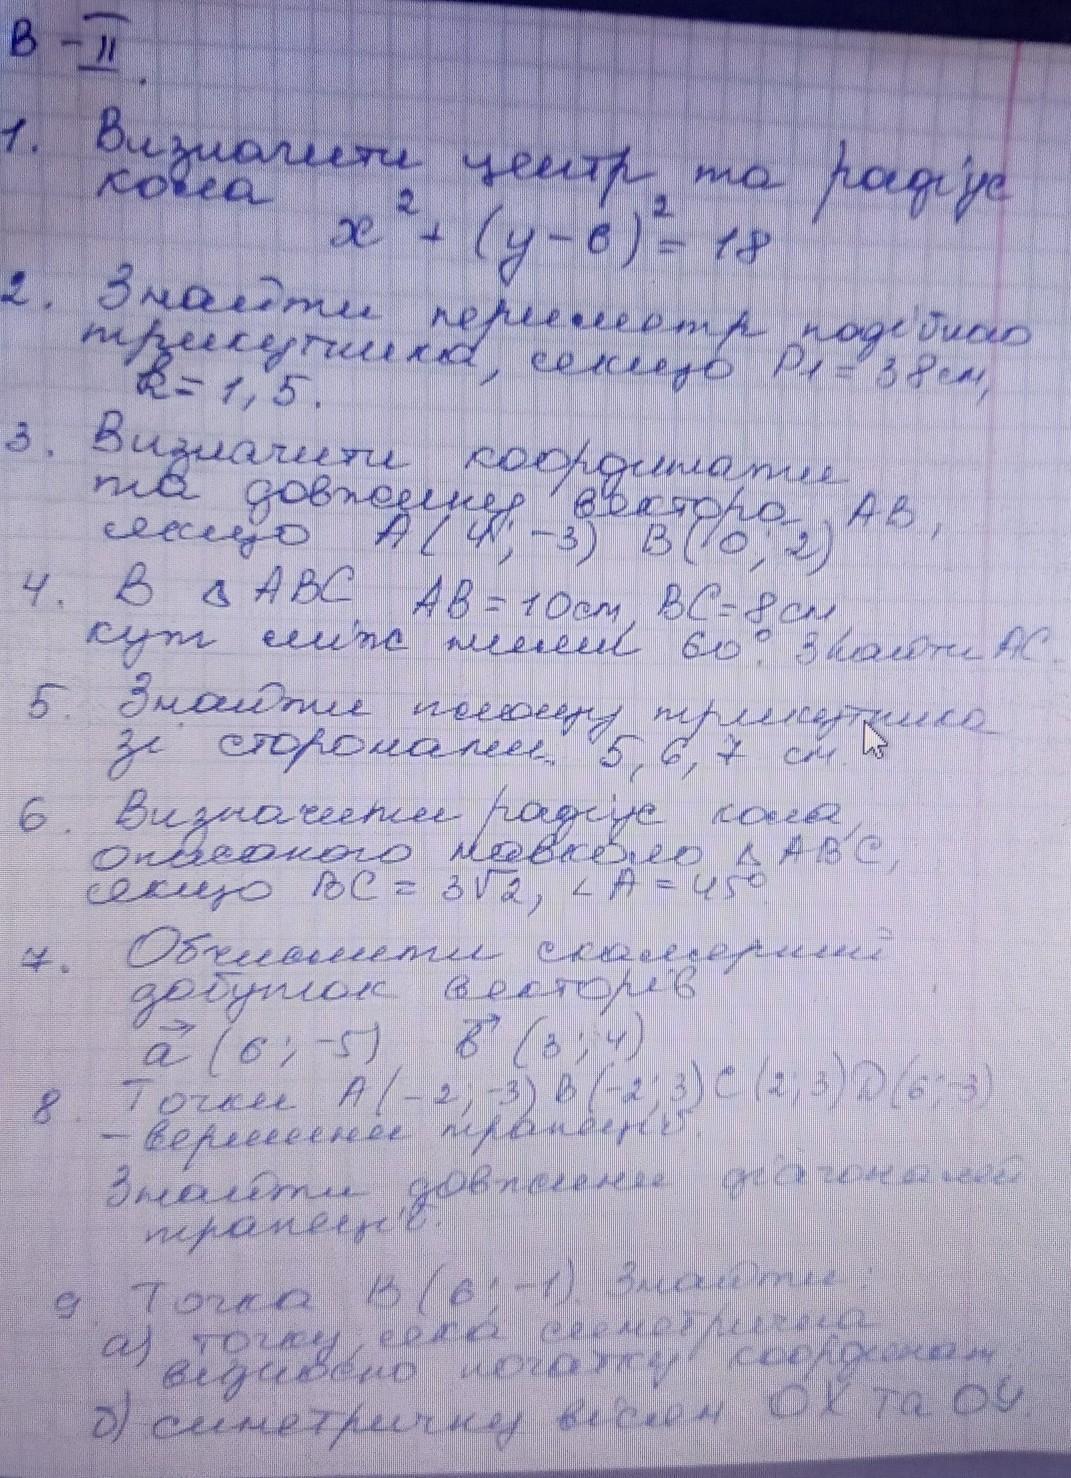 В - ІІ.
1. Визначити центр та радіус
кола
x² + (y - 6)² = 18
2. Знайти периметр подібного
трикутника, якщо P1 = 38см,
k = 1,5.
3. Визначити координати
та довжину вектора AB,
якщо A(4; -3) B(0; 2)
4. В Δ ABC AB = 10см, BC = 8см
кут між ними 60°. Знайти AC.
5. Знайти площу трикутника
зі сторонами 5, 6, 7 см.
6. Визначити радіус кола,
описаного навколо Δ ABC,
якщо BC = 3√2, ∠A = 45°
7. Обчислити скалярний
добуток векторів
a⃗ (6; -5) в⃗ (3; 4)
8. Точки A(-2; -3) B(-2; 3) C(2; 3) D(6; -3)
- вершини трапеції.
Знайти довжини діагоналей
трапеції.
9. Точка B(6; -1). Знайти:
а) точку, яка симетрична
відносно початку координат
б) симетричну вісям OX та OY.